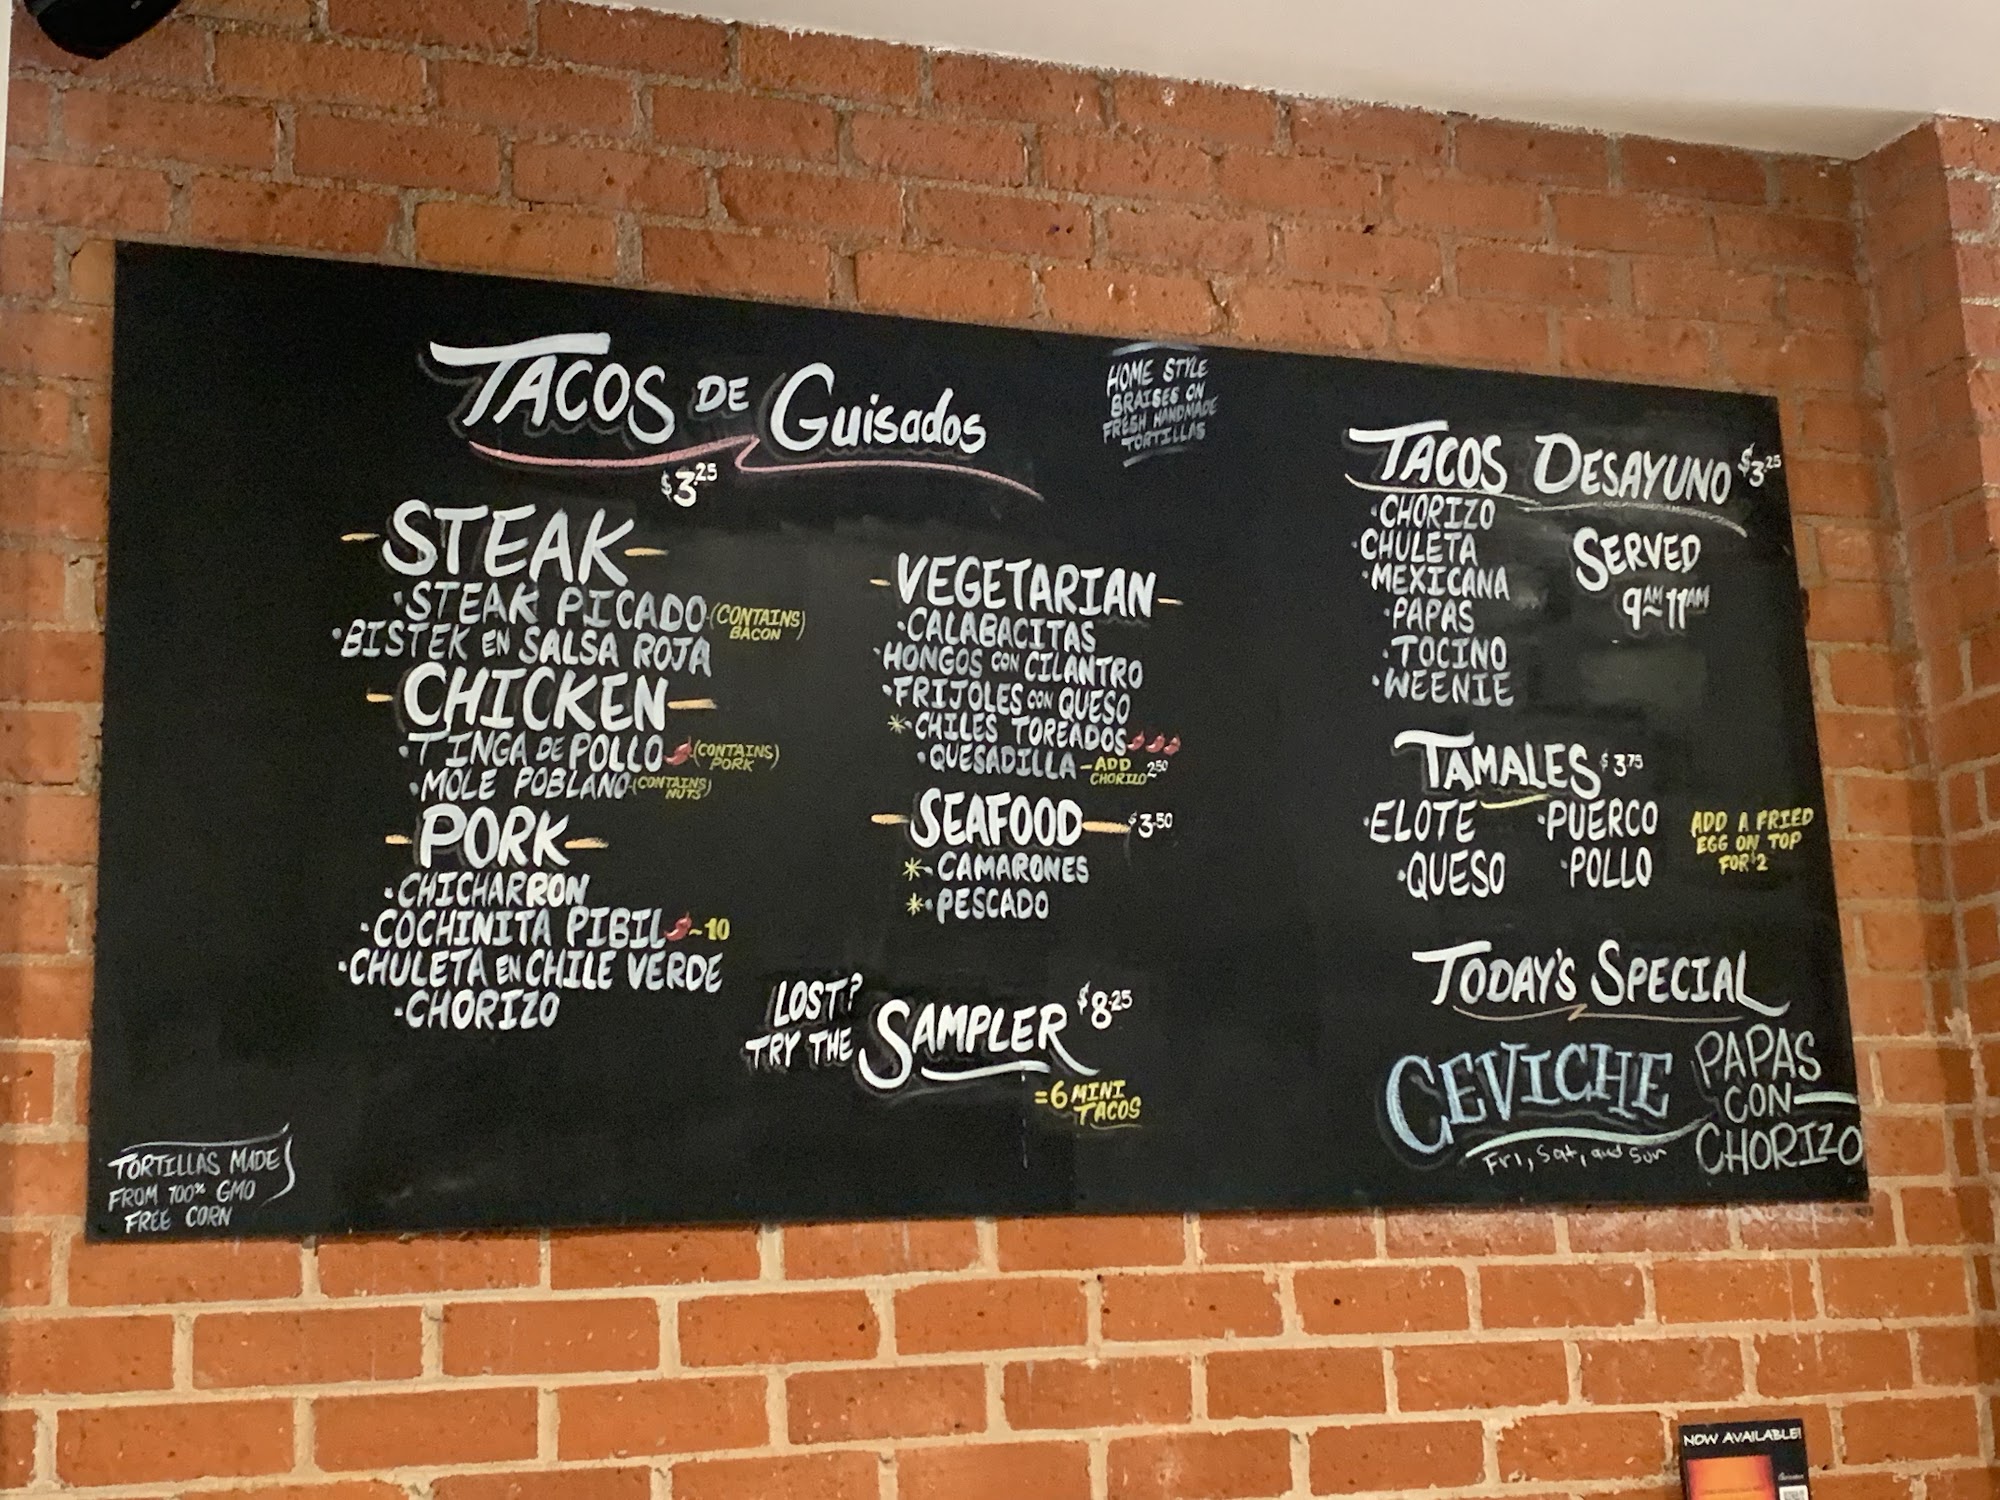 TACOS DE Guisados
$3.25
HOME STYLE
BRAISES ON
FRESH HANDMADE
TORTILLAS
STEAK
·STEAK PICADO (CONTAINS BACON)
·BISTEK EN SALSA ROJA
CHICKEN
·TINGA DE POLLO (CONTAINS PORK)
·MOLE POBLANO (CONTAINS NUTS)
PORK
·CHICHARRON
·COCHINITA PIBIL ~10
·CHULETA EN CHILE VERDE
·CHORIZO
VEGETARIAN
·CALABACITAS
·HONGOS CON CILANTRO
·FRIJOLES CON QUESO
*·CHILES TOREADOS
·QUESADILLA - ADD CHORIZO 2.50
SEAFOOD $3.50
*·CAMARONES
*·PESCADO
LOST?
TRY THE SAMPLER $8.25
=6 MINI
TACOS
TORTILLAS MADE
FROM 100% GMO
FREE CORN
TACOS DESAYUNO $3.25
·CHORIZO
·CHULETA
·MEXICANA
·PAPAS
·TOCINO
·WEENIE
SERVED
9AM~11AM
TAMALES $3.75
·ELOTE ·PUERCO
·QUESO ·POLLO
ADD A FRIED
EGG ON TOP
FOR $2
TODAY'S SPECIAL
CEVICHE
Fri, Sat, and Sun
PAPAS
CON
CHORIZO
NOW AVAILABLE!